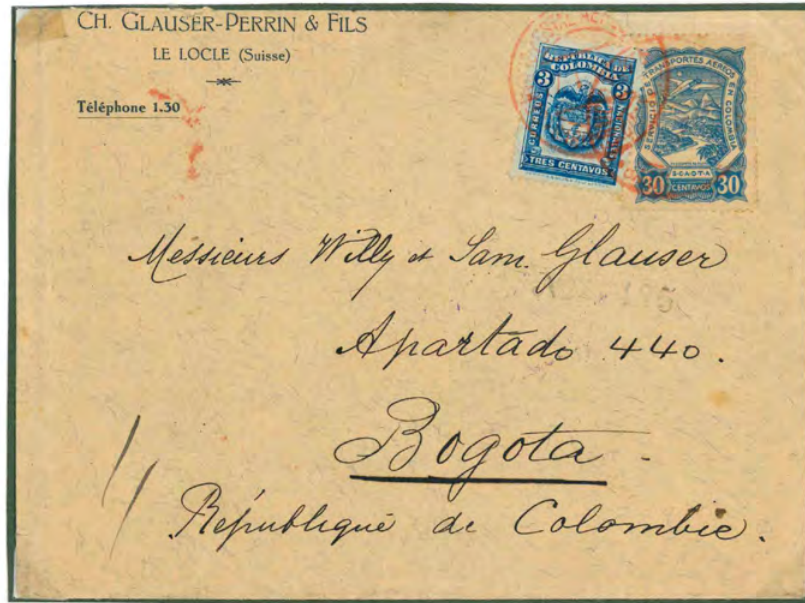 CH. GLAUSER-PERRIN & FILS
LE LOCLE (Suisse)
Téléphone 1.30
REPUBLICA DE
COLOMBIA
3 3
CORREOS NACIONALES
TRES CENTAVOS
SERVICIO DE TRANSPORTES AEREOS EN COLOMBIA
SCADTA
30 CENTAVOS 30
Messieurs Willy et Sam. Glauser
Apartado 440.
Bogota.
République de Colombie.